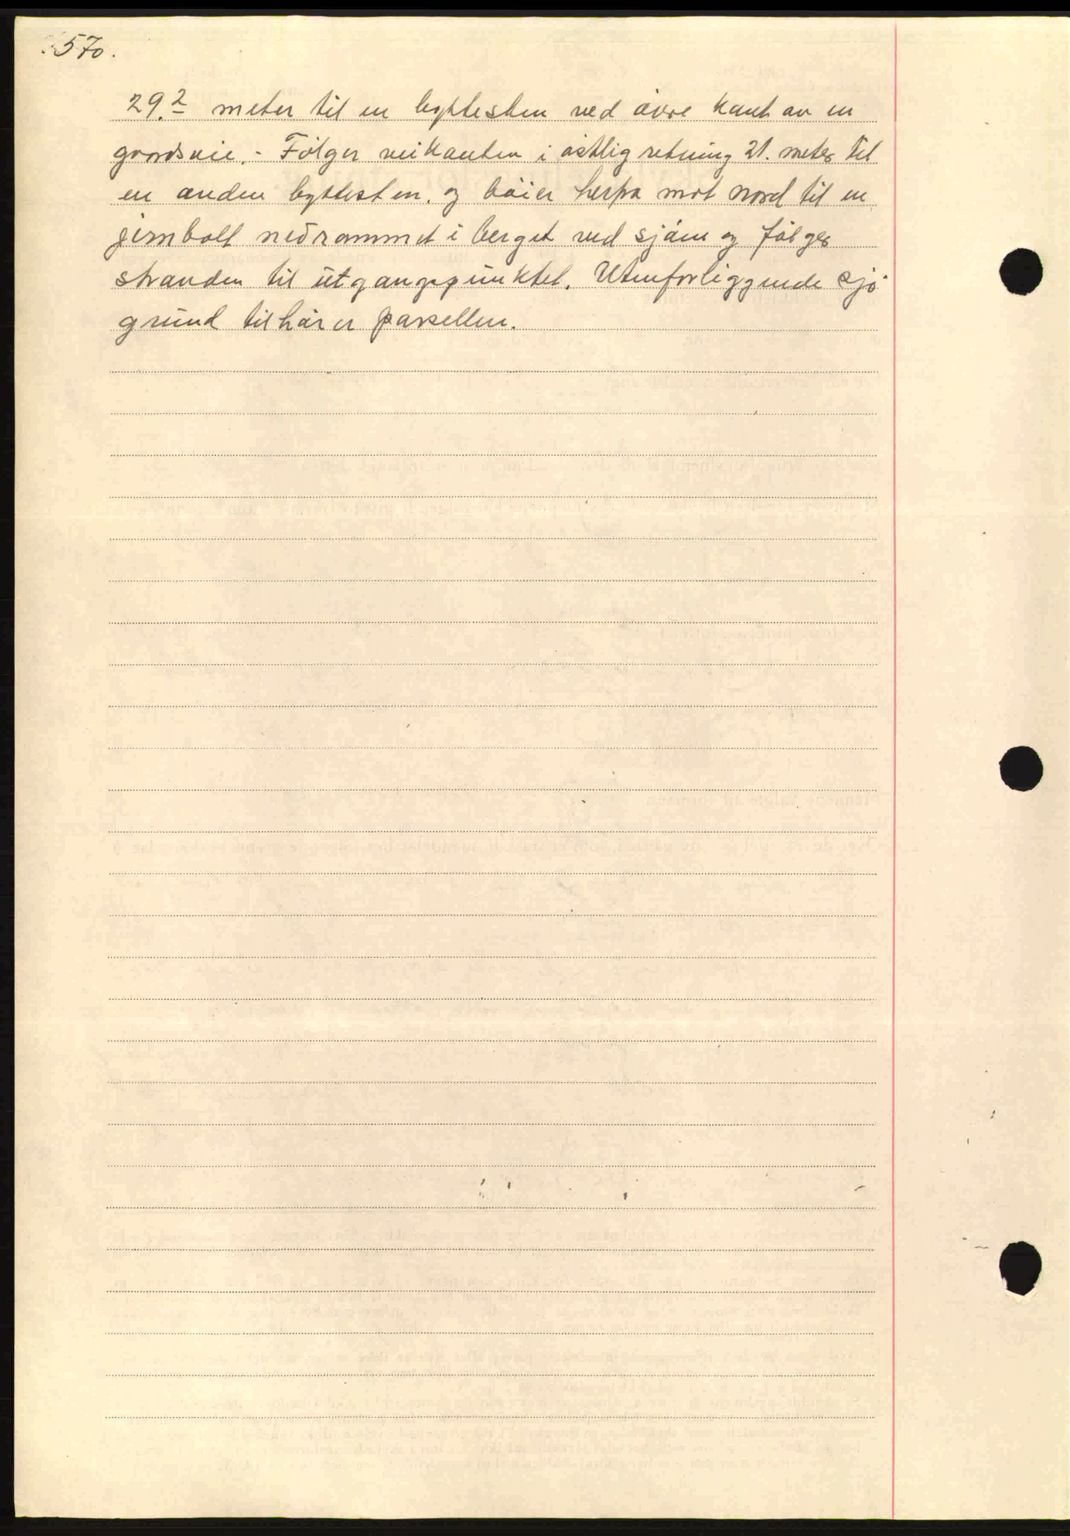 570.
29.2 meter til en byttesten ved övre kant av en
gaardsveie. - Følger veikanten i østlig retning 21. meter til
en anden byttesten. og bøier herfra mot nord til en
jernbolt nedrammet i berget ved sjøen og følger
stranden til utgangspunktet. Utenforliggende sjø
grund tilhører parsellen.